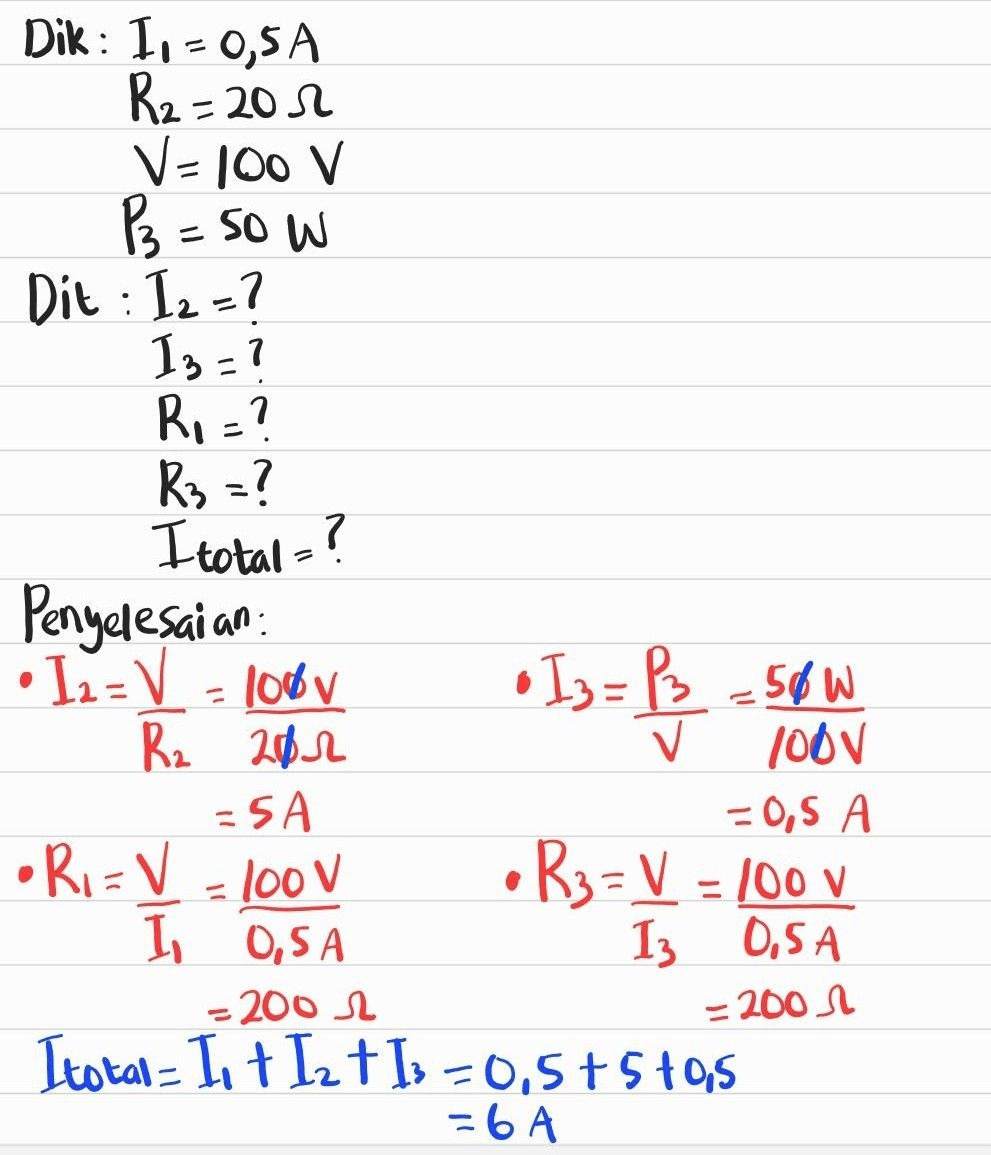 Dik : I₁ = 0,5 A
R₂ = 20 Ω
V = 100 V
P₃ = 50 W
Dit : I₂ = ?
I₃ = ?
R₁ = ?
R₃ = ?
I total = ?
Penyelesaian :
• I₂ = V/R₂ = 100 V/20 Ω
= 5 A
• I₃ = P₃/V = 50 W/100 V
= 0,5 A
• R₁ = V/I₁ = 100 V/0,5 A
= 200 Ω
• R₃ = V/I₃ = 100 V/0,5 A
= 200 Ω
I total = I₁ + I₂ + I₃ = 0,5 + 5 + 0,5
= 6 A